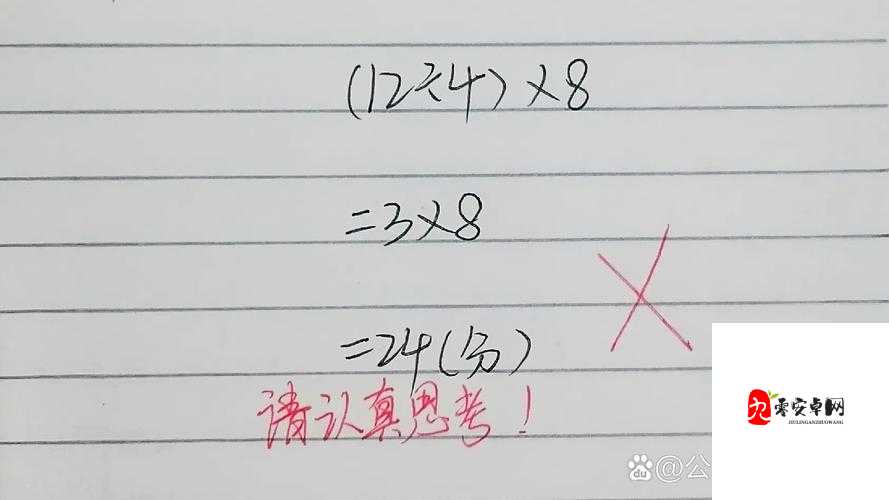 (12÷4)×8
=3×8
=24(分)
请认真思考！
九零安卓网
JIULINGANZHUOWANG
du @公